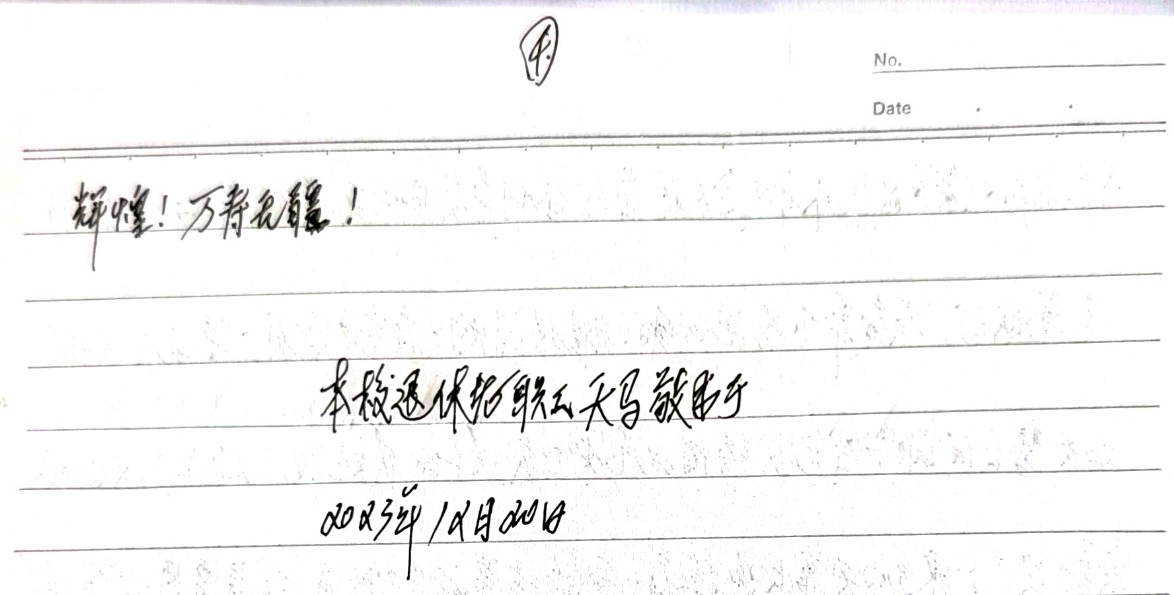 4.
No.
Date
辉煌！万寿无疆！
本校退休教职工天马敬书于
2023年12月20日